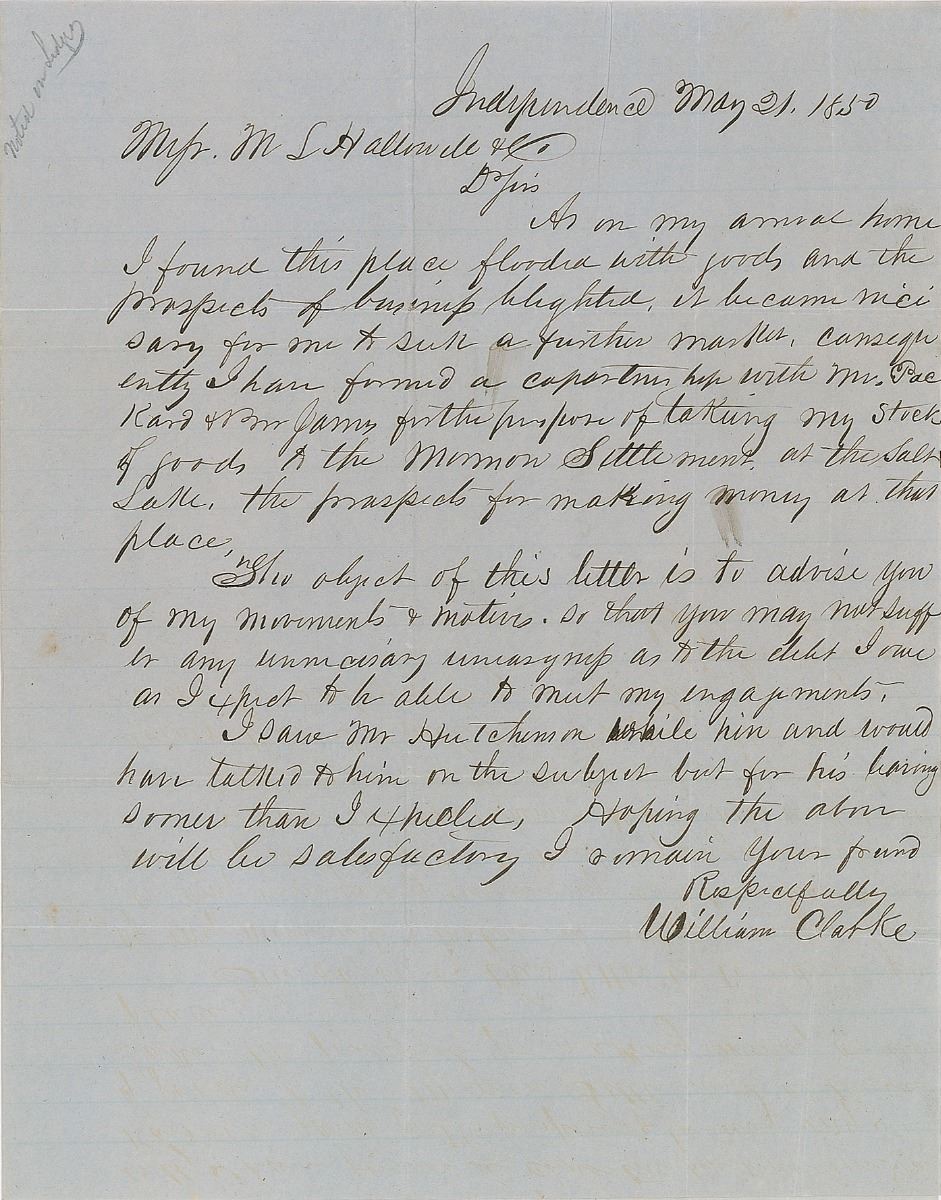 Noted on Ledger
Independence May 21. 1850
Messr. M L Hallowell & Co
Dr Sirs
As on my arrival home
I found this place flooded with goods and the
prospects of business blighted, it became nece
sary for me to seek a further market, consequ
ently I have formed a copartnership with Mr. Pac
Kard & Mr James for the purpose of taking my Stock
of goods to the Mormon Settlement, at the Salt
Lake, the prospects for making money at that
place,
The object of this letter is to advise you
of my movements & motives. so that you may not suff
er any unnecisary uneasyness as to the debt I owe
as I expect to be able to meet my engagements.
I saw Mr Hutchinson while hin and would
have talked to him on the subject but for his leaving
sooner than I expected, Hoping the above
will be satisfactory I remain your friend
Respectfully
William Clarke